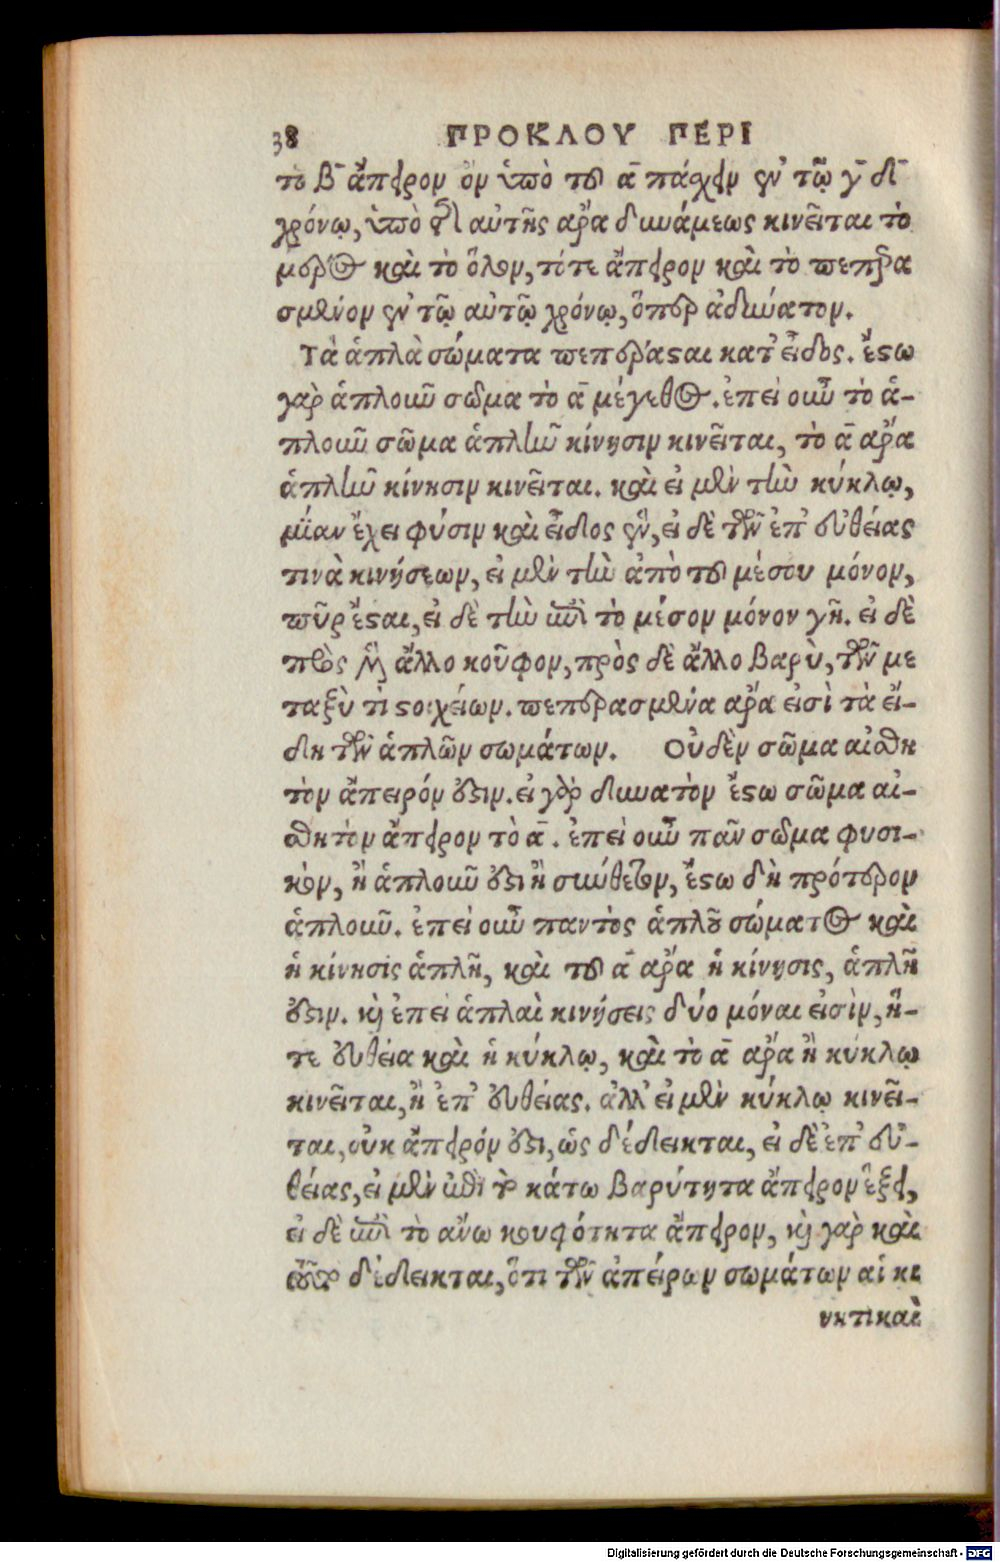 38 ΠΡΟΚΛΟΥ ΠΕΡΙ
τὸ β̄ ἄπειρον ὂν ὑπὸ τοῦ ᾱ πάσχειν ἐν τῷ γ̄ δὶ
χρόνῳ, ὑπὸ τῆς αὐτῆς ἄρα δυνάμεως κινεῖται τὸ
μέρος καὶ τὸ ὅλον, τότε ἄπειρον καὶ τὸ πεπερα
σμένον ἐν τῷ αὐτῷ χρόνῳ, ὅπερ ἀδύνατον.
Τὰ ἁπλὰ σώματα πεπέρασται κατ' εἶδος. ἔστω
γὰρ ἁπλοῦν σῶμα τὸ ᾱ μέγεθος. ἐπεὶ οὖν τὸ ἁ-
πλοῦν σῶμα ἁπλῆν κίνησιν κινεῖται, τὸ ᾱ ἄρα
ἁπλῆν κίνησιν κινεῖται. καὶ εἰ μὲν τὴν κύκλῳ,
μίαν ἔχει φύσιν καὶ εἶδος ἕν, εἰ δὲ τῶν ἐπ' εὐθείας
τινὰ κινήσεων, εἰ μὲν τὴν ἀπὸ τοῦ μέσου μόνον,
πῦρ ἔσται, εἰ δὲ τὴν ἐπὶ τὸ μέσον μόνον γῆ. εἰ δὲ
πρὸς μὲν ἄλλο κοῦφον, πρὸς δὲ ἄλλο βαρὺ, τῶν με
ταξύ τι στοιχείων. πεπερασμένα ἄρα εἰσὶ τὰ εἴ-
δη τῶν ἁπλῶν σωμάτων. Οὐδὲν σῶμα αἰσθη
τὸν ἄπειρόν ἐστιν. εἰ γὰρ δυνατὸν ἔστω σῶμα αἰ-
σθητὸν ἄπειρον τὸ ᾱ. ἐπεὶ οὖν πᾶν σῶμα φυσι-
κὸν, ἢ ἁπλοῦν ἐστι ἢ σύνθετον, ἔστω δὴ πρότερον
ἁπλοῦν. ἐπεὶ οὖν παντὸς ἁπλοῦ σώματος καὶ
ἡ κίνησις ἁπλῆ, καὶ τοῦ ᾱ ἄρα ἡ κίνησις, ἁπλῆ
ἐστιν. καὶ ἐπεὶ ἁπλαὶ κινήσεις δύο μόναι εἰσὶν, ἥ-
τε εὐθεία καὶ ἡ κύκλῳ, καὶ τὸ ᾱ ἄρα ἢ κύκλῳ
κινεῖται, ἢ ἐπ' εὐθείας. ἀλλ' εἰ μὲν κύκλῳ κινεῖ-
ται, οὐκ ἄπειρόν ἐστι, ὡς δέδεικται, εἰ δὲ ἐπ' εὐ-
θείας, εἰ μὲν ἐπὶ τὸ κάτω βαρύτητα ἄπειρον ἕξει,
εἰ δὲ ἐπὶ τὸ ἄνω κουφότητα ἄπειρον, καὶ γὰρ καὶ
τοῦτο δέδεικται, ὅτι τῶν ἀπείρων σωμάτων αἱ κι
νητικαὶ
Digitalisierung gefördert durch die Deutsche Forschungsgemeinschaft - DFG